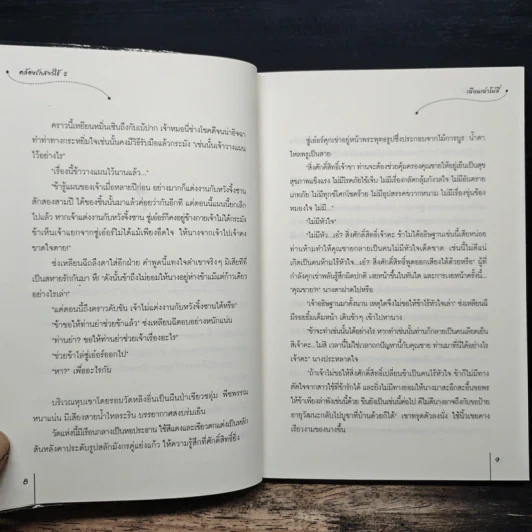 คล้องใจเสน่ห์ร้าย 2
คราวนี้เหยียนหมิ่นเชินถึงกับเบ้ปาก เจ้าหมอนี่ช่างโชคดีจนน่าอิจฉา
ทำท่าทางกระหยิ่มใจเช่นนั้นคงมีวิธีรับมือแล้วกระมัง “เช่นนั้นเจ้าวางแผน
ไว้อย่างไร”
“เรื่องนี้ข้าวางแผนไว้นานแล้ว...”
“ข้ารู้แผนของเจ้าเมื่อหลายปีก่อน อย่างมากก็แต่งงานกับหวังจิ้งซาน
สักสองสามปี ได้ของชิ้นนั้นมาแล้วค่อยว่ากันอีกที แต่ตอนนี้แผนนี้ยกเลิก
ไปแล้ว หากเจ้าแต่งงานกับหวังจิ้งซาน ซู่เอ๋อร์ก็คงอยู่ข้างกายเจ้าไม่ได้กระมัง
ข้าเห็นเจ้าแยกจากซู่เอ๋อร์ไม่ได้แม้เพียงอึดใจ ให้นางจากเจ้าไปเจ้าคง
ขาดใจตาย!”
ซ่งเหยียนฉีถลึงตาใส่อีกฝ่าย คำพูดนี้แทงใจดำเขาจริงๆ มิเสียที่
เป็นสหายรักกันมา หึ! “ดังนั้นข้าถึงไม่ยอมให้นางอยู่ห่างข้าแม้แต่ก้าวเดียว
อย่างไรเล่า”
“แต่ตอนนี้ถึงคราวคับขัน เจ้าไม่แต่งงานกับหวังจิ้งซานได้หรือ”
“ข้าขอให้ท่านย่าช่วยข้าแล้ว” ซ่งเหยียนฉีตอบอย่างหนักแน่น
“ท่านย่า? ขอให้ท่านย่าช่วยเจ้าเรื่องอะไร”
“ช่วยข้าไล่ซู่เอ๋อร์ออกไป”
“หา?” เพื่ออะไรกัน
บริเวณหุบเขาโดยรอบวัดหลิงอิ่นเป็นผืนป่าเขียวชอุ่ม พืชพรรณ
หนาแน่น มีเสียงสายน้ำไหลระริน บรรยากาศสงบร่มเย็น
วัดแห่งนี้มีเรือนกลางเป็นหอประธาน ใช้สีแดงและเขียวตกแต่งเป็นหลัก
สันหลังคาประดับรูปสลักมังกรคู่แย่งแก้ว ให้ความรู้สึกที่ศักดิ์สิทธิ์ยิ่ง
8
เมียวเม่าโม่ลี่
ซู่เอ๋อร์คุกเข่าอยู่หน้าพระพุทธรูปซึ่งประกอบจากไม้การบูร น้ำตา
ไหลพรูเป็นสาย
“สิ่งศักดิ์สิทธิ์เจ้าขา ท่านจะต้องช่วยคุ้มครองคุณชายให้อยู่เย็นเป็นสุข
สุขภาพแข็งแรง ไม่มีโรคภัยไข้เจ็บ ไม่มีเรื่องกลัดกลุ้มกังวลใจ ไม่มีอันตราย
เภทภัย ไม่มีทุกข์โศกโชคร้าย ไม่มีอุปสรรคขวากหนาม ไม่มีเรื่องขุ่นข้อง
หมองใจ ไม่มี...”
“ไม่มีหัวใจ”
“ไม่มีหัวใจ...เอ๋? สิ่งศักดิ์สิทธิ์เจ้าคะ ข้าไม่ได้อธิษฐานเช่นนี้เสียหน่อย
ท่านห้ามทำให้คุณชายกลายเป็นคนไม่มีหัวใจเด็ดขาด เช่นนี้ไม่ดีแน่
เกิดเป็นคนห้ามไร้หัวใจ...เอ๋? สิ่งศักดิ์สิทธิ์พูดออกเสียงได้ด้วยหรือ” ผู้ที่
กำลังคุกเข่าพลันรู้สึกผิดปกติ เงยหน้าขึ้นในทันใด และการเงยหน้าครั้งนี้...
“คุณชาย?!” นางตาฝาดไปหรือ
“เจ้าอธิษฐานมาตั้งนาน เหตุใดจึงไม่ขอให้ข้าไร้หัวใจเล่า” ซ่งเหยียนฉี
มีรอยยิ้มเต็มหน้า เดินช้าๆ เข้าไปหานาง
“ข้าจะทำเช่นนั้นได้อย่างไร หากทำเช่นนั้นท่านก็กลายเป็นคนเลือดเย็น
สิเจ้าคะ...ไม่สิ เวลานี้ไม่ใช่เวลาถกปัญหานี้กับคุณชาย ท่านมาที่นี่ได้อย่างไร
เจ้าคะ” นางประหลาดใจ
“ถ้าเจ้าไม่ขอให้สิ่งศักดิ์สิทธิ์เปลี่ยนข้าเป็นคนไร้หัวใจ ข้าก็ไม่มีทาง
ตัดใจจากสาวใช้ที่ข้ารักได้ และยิ่งไม่มีทางยอมให้นางมาสะอึกสะอื้นขอพร
ให้ข้าเพียงลำพังเช่นนี้ด้วย ขืนยังเป็นเช่นนี้ต่อไป ดีไม่ดีนางอาจถึงกับขอป้าย
อายุวัฒนะกลับไปบูชาที่บ้านด้วยก็ได้” เขาทรุดตัวลงนั่ง ใช้นิ้วเชยคาง
เรียวงามของนางขึ้น
9